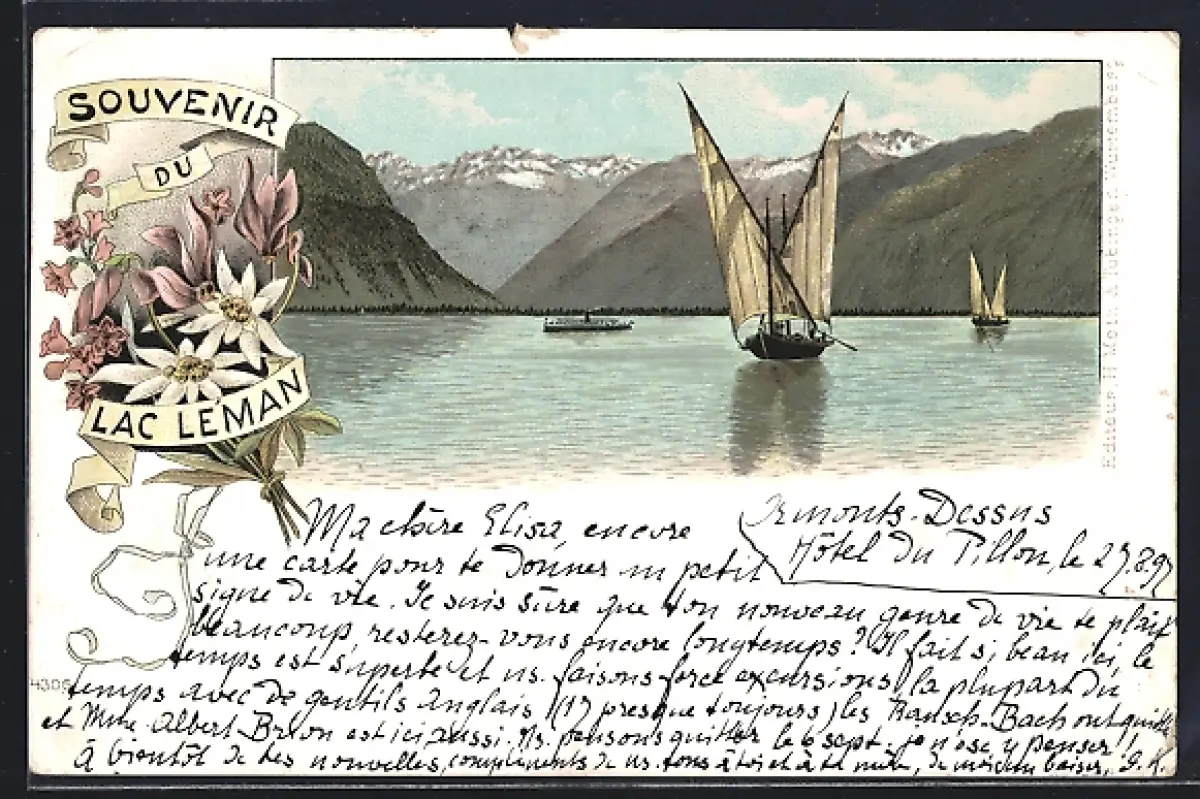 SOUVENIR
DU
LAC LEMAN
Editeur. H. Metz, Tubingen, Wurtemberg
4306
Ormonts-Dessus
Hôtel du Pillon, le 27.8.97
Ma chère Elisa, encore
une carte pour te donner un petit
signe de vie. Je suis sûre que ton nouveau genre de vie te plaît
beaucoup, resterez-vous encore longtemps? Il fait si beau ici, le
temps est superbe et ns. faisons force excursions la plupart du
temps avec de gentils Anglais (17 presque toujours) les Bach ont quitté
et Mme Albert Brion est ici aussi. Ns. pensons quitter le 6 sept. je n'ose y penser!
à bientôt de tes nouvelles, compliments de ns. tous à toi et à ta mère, baiser,